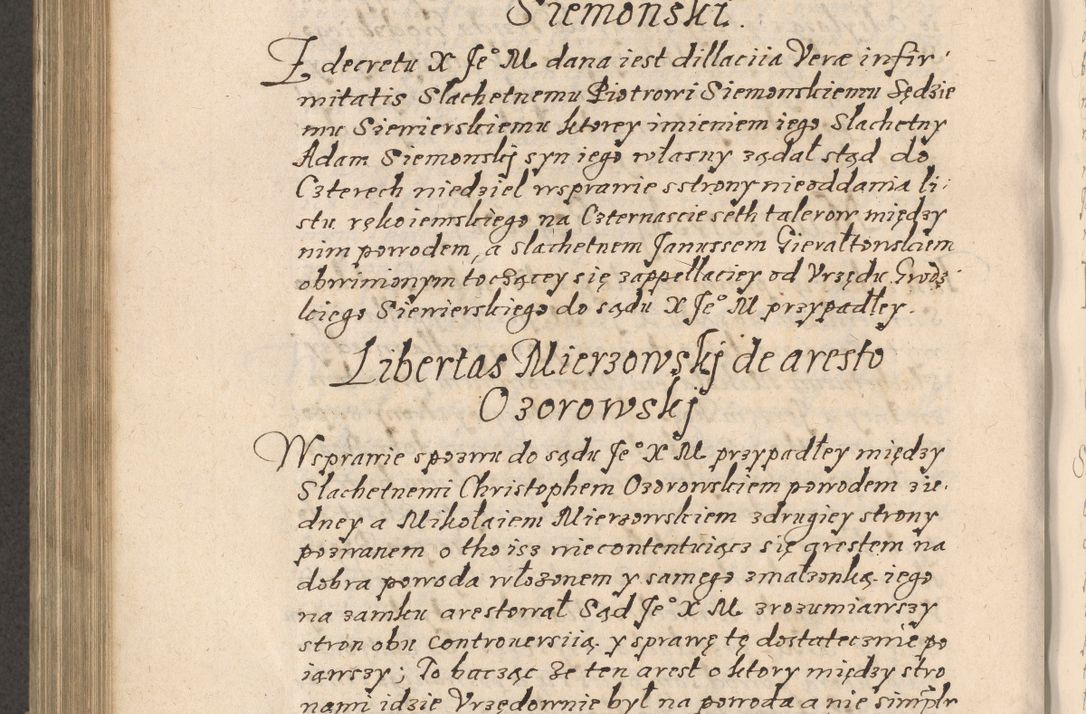 Siemonski.
Z decretu X Je° M dana iest dillaciia Veræ infir
mitatis Slachetnemu Piotrowi Siemonskiemu Sędzie
mu Siewierskiemu ktorey imieniem iego Slachetny
Adam Siemonskj syn iego własny ządał stąd do
Czterech niedziel wsprawie sstrony nieoddania li:
stu rękoiemskiego na Czternascie seth talerow między
nim powodem, a slachetnem Janussem Gierałtowskiem
obwinionym toczącey się zappellaciey od Vrzędu Grodz:
kiego Siewierskiego do sądu X Je° M przypadłey.
Libertas Mierzowskj de aresto
Ozorowskj
Wsprawie spozwu do sądu Je° X M przypadłey między
Slachetnemi Christophem Ozorowskiem powodem zie:
dney a Mikołaiem Mierzowskiem zdrugiey strony
pozwanem o tho isz niecontentuiącz się arestem na
dobra powoda włozonem y samego zmałzonką iego
na zamku arestował Sąd Je° X M zrozumiawszy
stron obu controuersiią y sprawę tę dostatecznie po
iąwszy; To bacząc Ze ten arest o ktory między stro
nami idzie Vrzędownie był na powoda a nie simplr